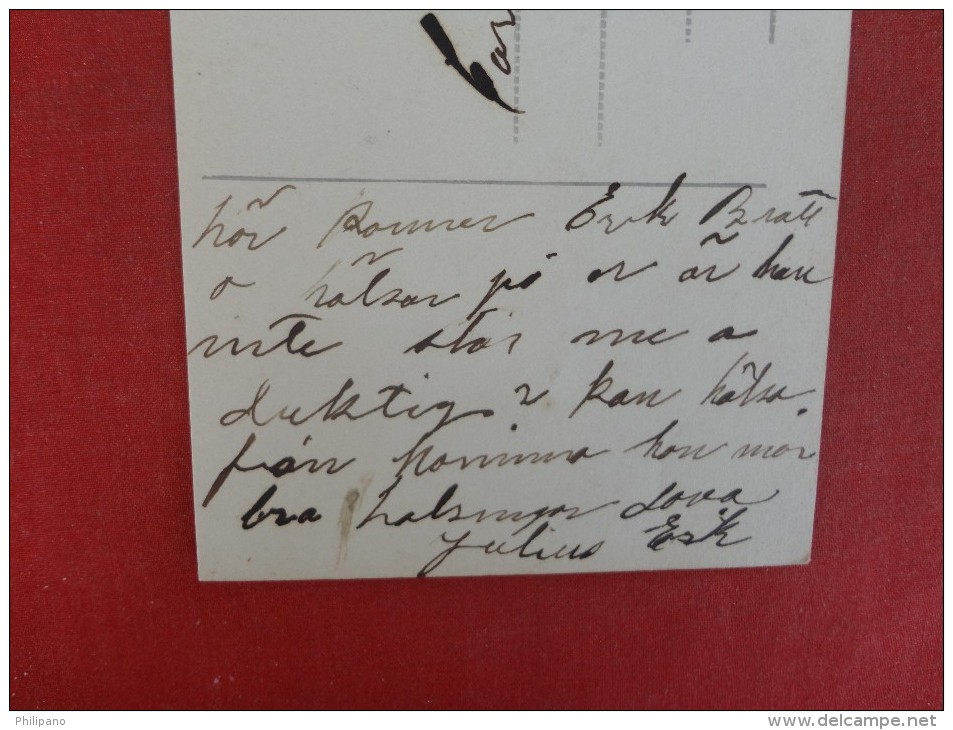 hör kommer Erik Bratt
o hälsar på er är han
inte stor me a
duktig? kan hälsa
från mamma hon mår
bra hälsningar Lova
Julius Erik
Philipano
www.delcampe.net